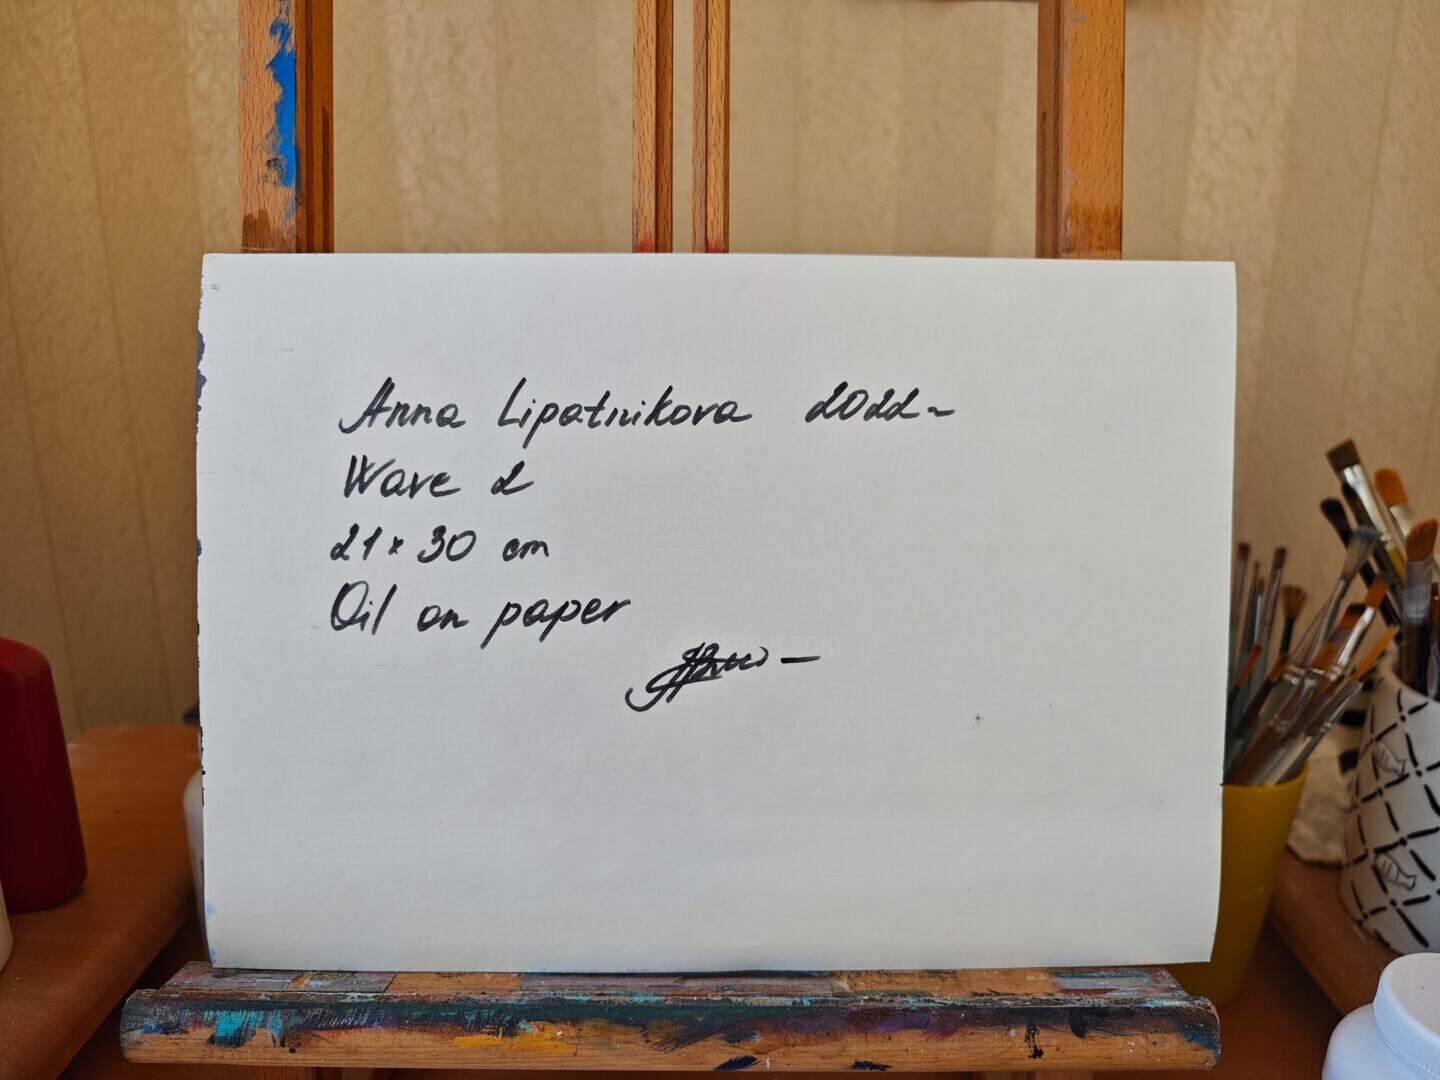 Anna Lipatnikova 2022
Wave 2
21x30 cm
Oil on paper